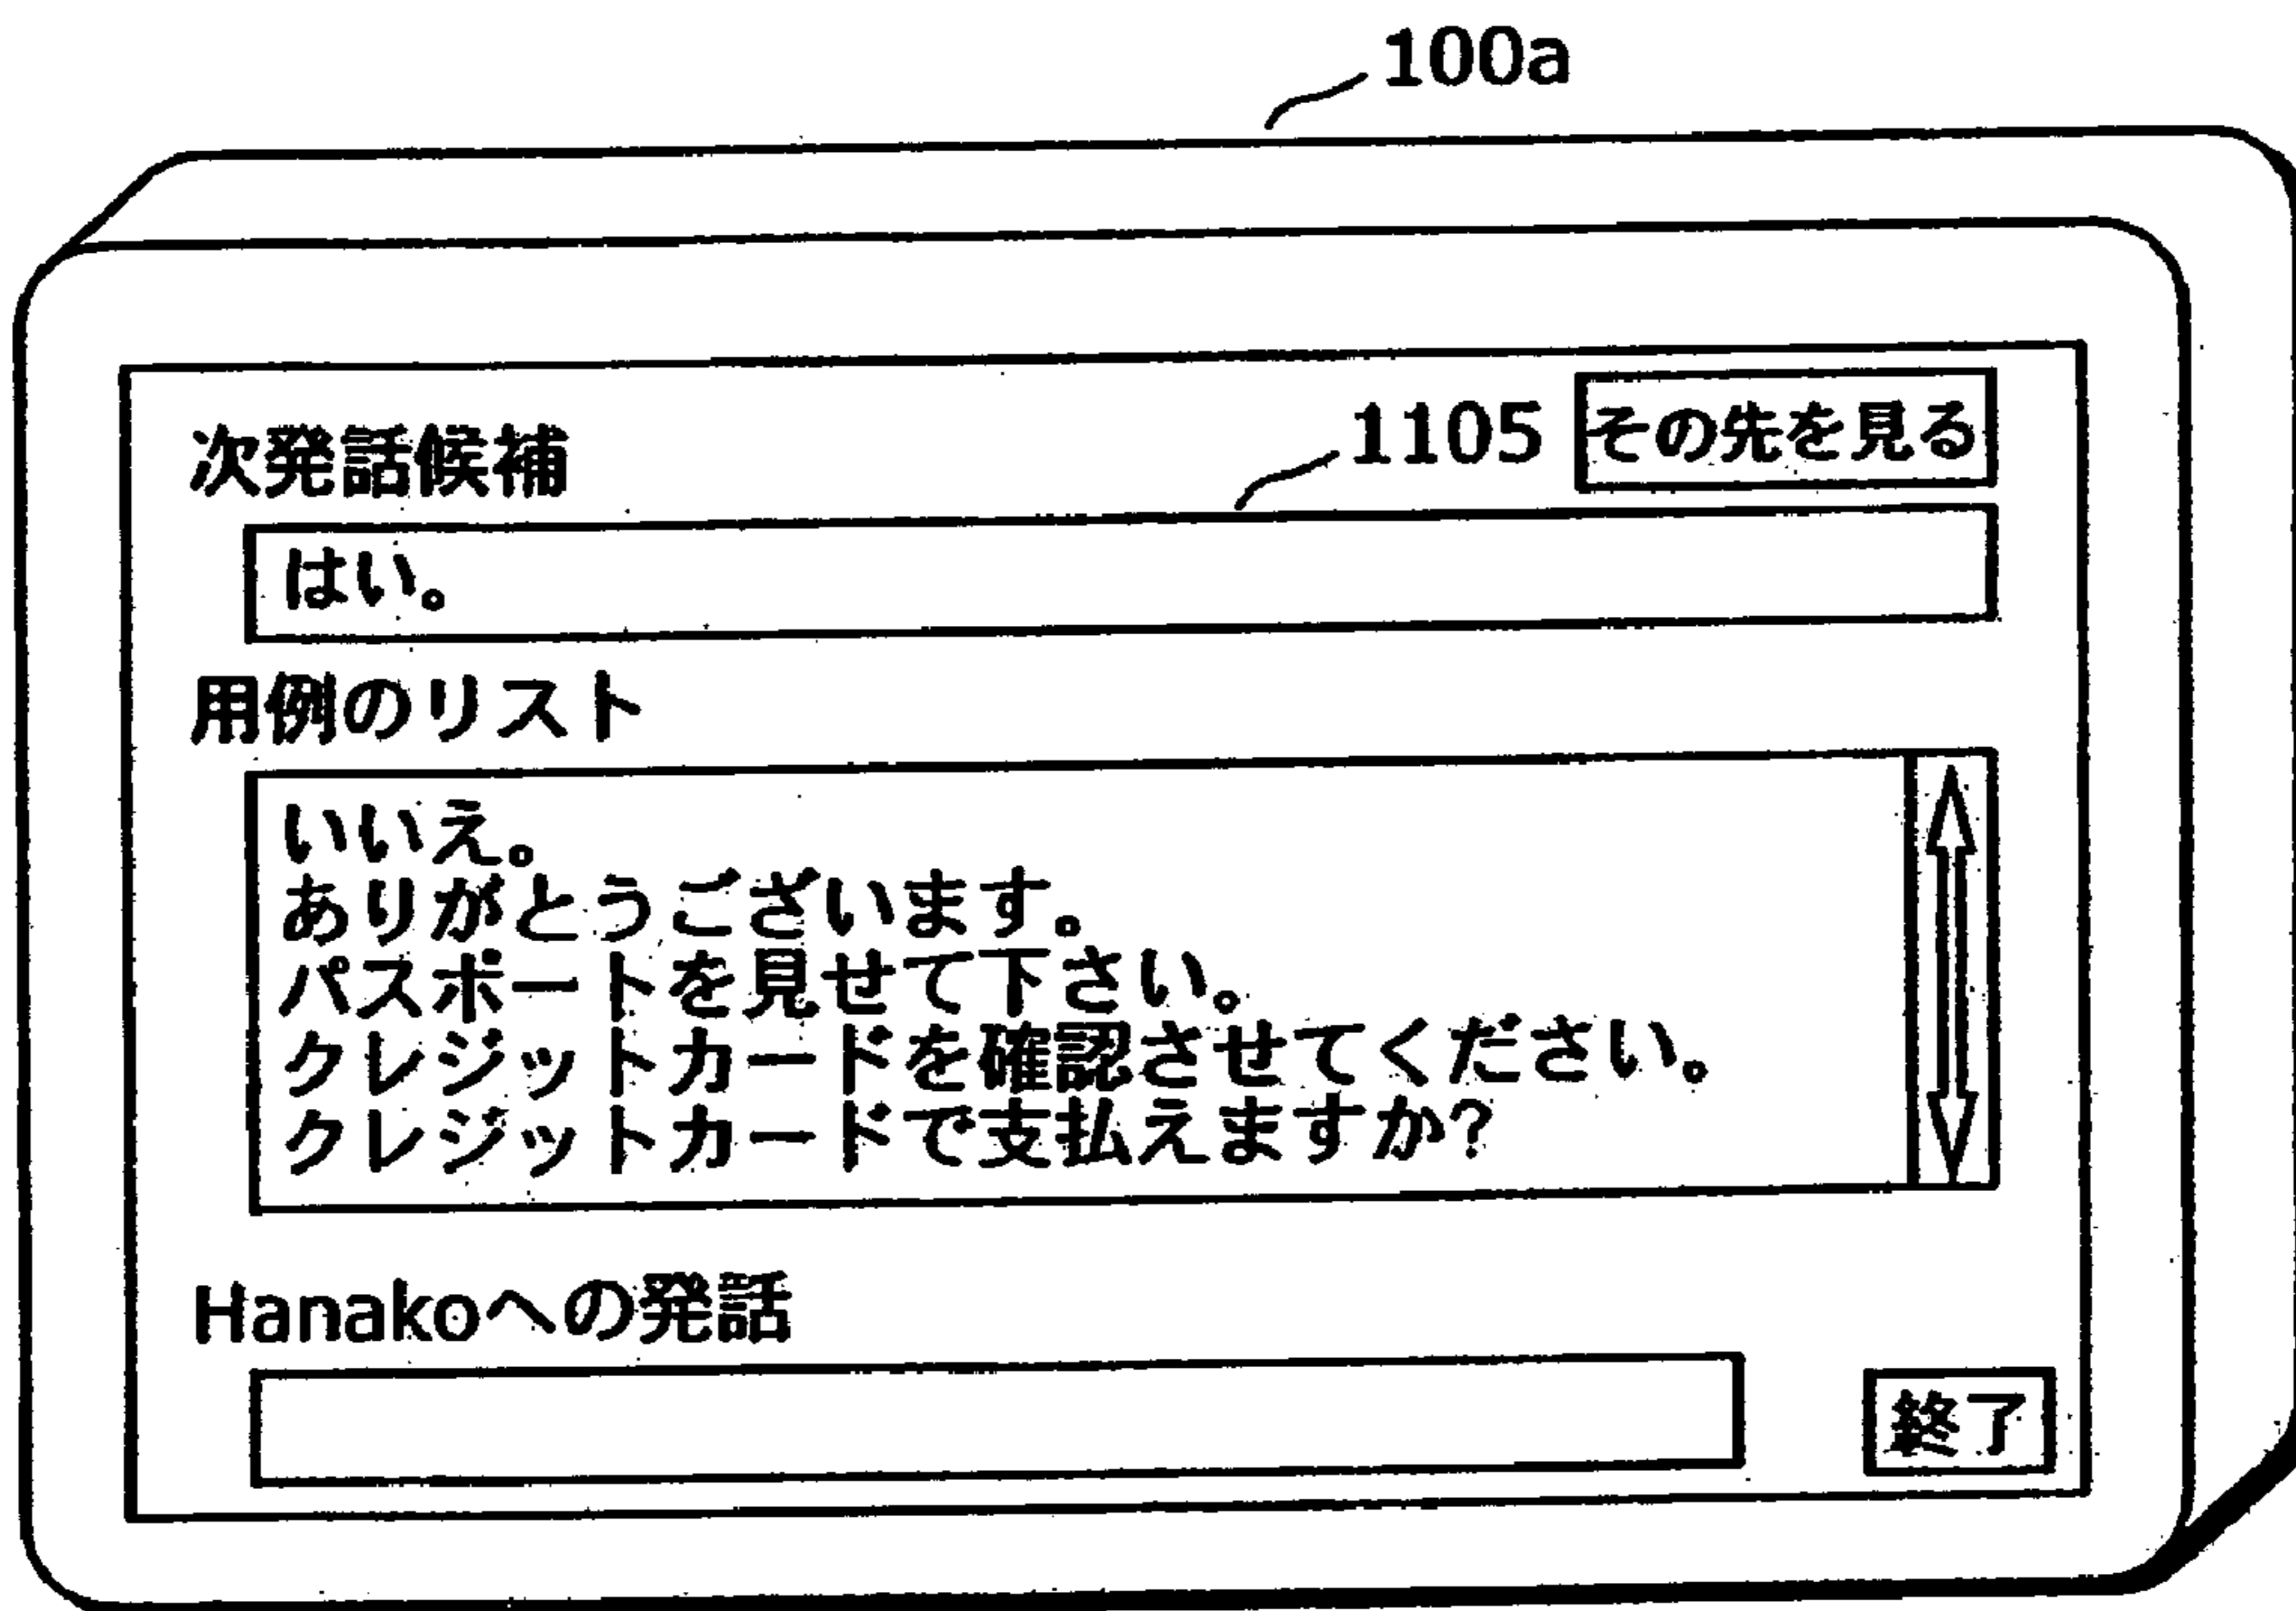 100a
1105 その先を見る
次発話候補
はい。
用例のリスト
いいえ。
ありがとうございます。
パスポートを見せて下さい。
クレジットカードを確認させてください。
クレジットカードで支払えますか?
Hanakoへの発話
終了